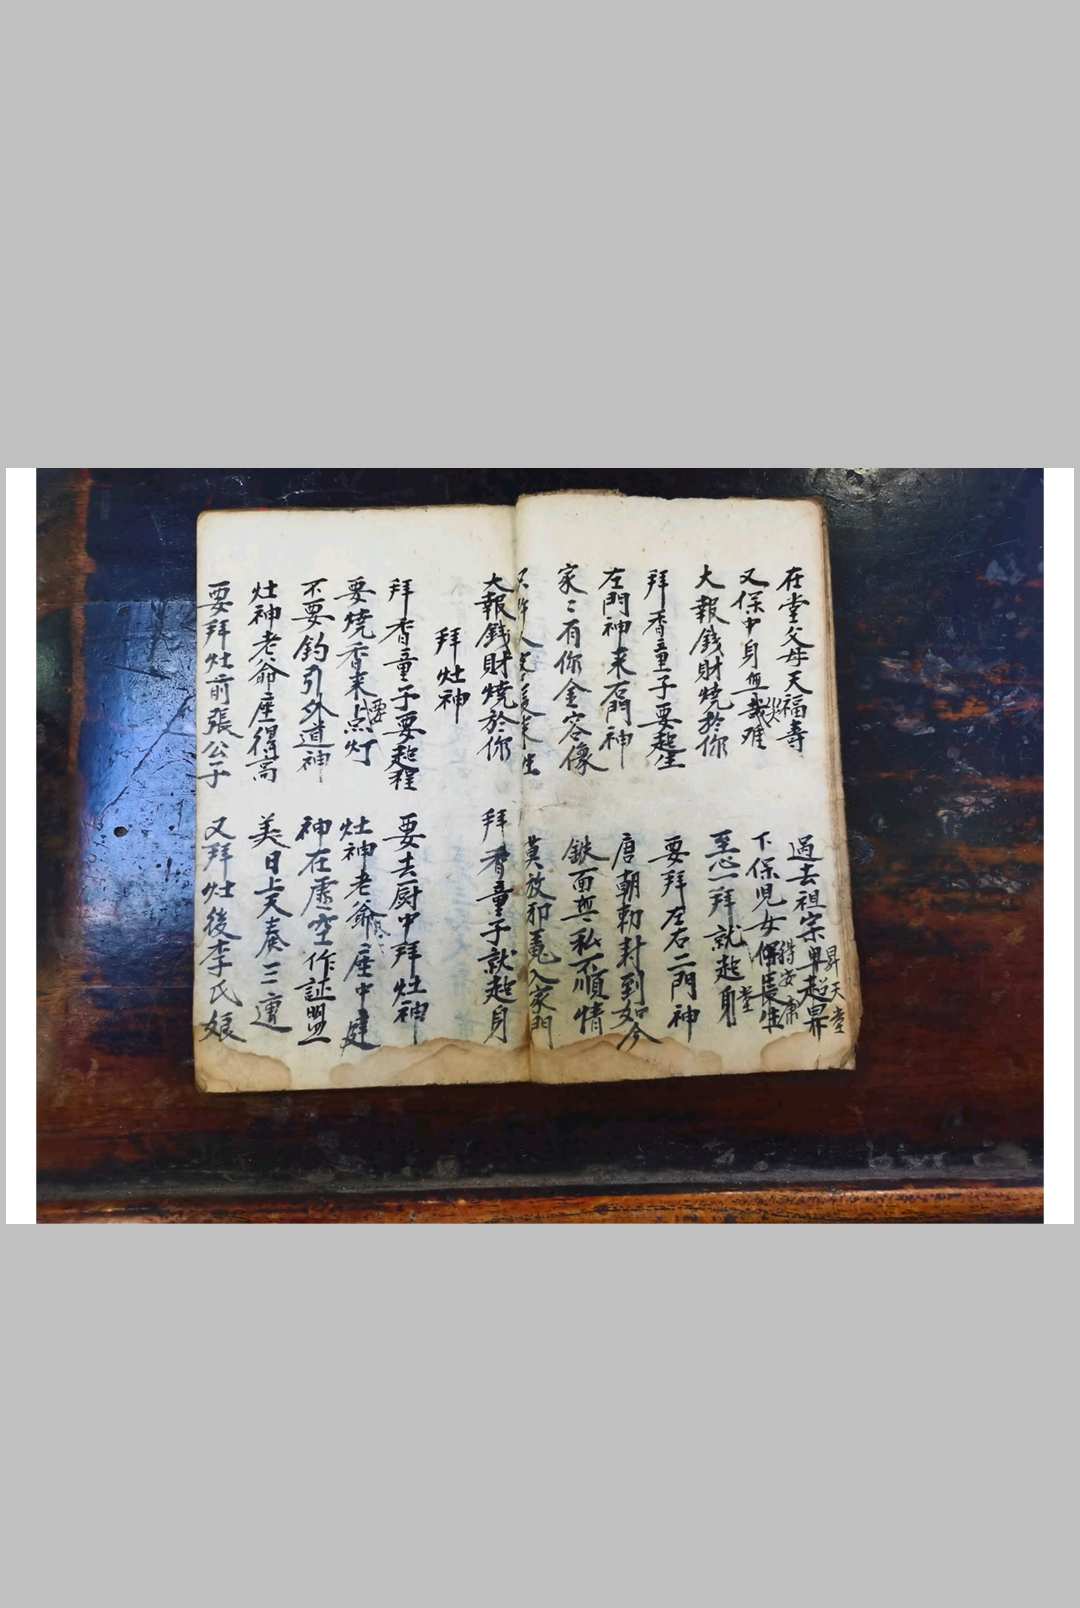 在堂父母天福壽
過去祖宗早起昇
昇天堂
又保中身無災难
下保児女保長生
得安康
大報錢財燒於你
至心一拜就起身
堂
拜香童子要起呈
要拜左右二門神
左門神来右門神
唐朝勅封到如今
家々有你金容像
鉄面無私不順情
莫放邪鬼入家門
大報錢財燒於你
拜香童子就起身
拜灶神
拜香童子要起程
要去厨中拜灶神
要燒香来点灯
要
灶神老爺座中庭
不要釣引外道神
神在虛空作証盟
灶神老爺座得高
美日上天奏三遭
要拜灶前張公子
又拜灶後李氏娘